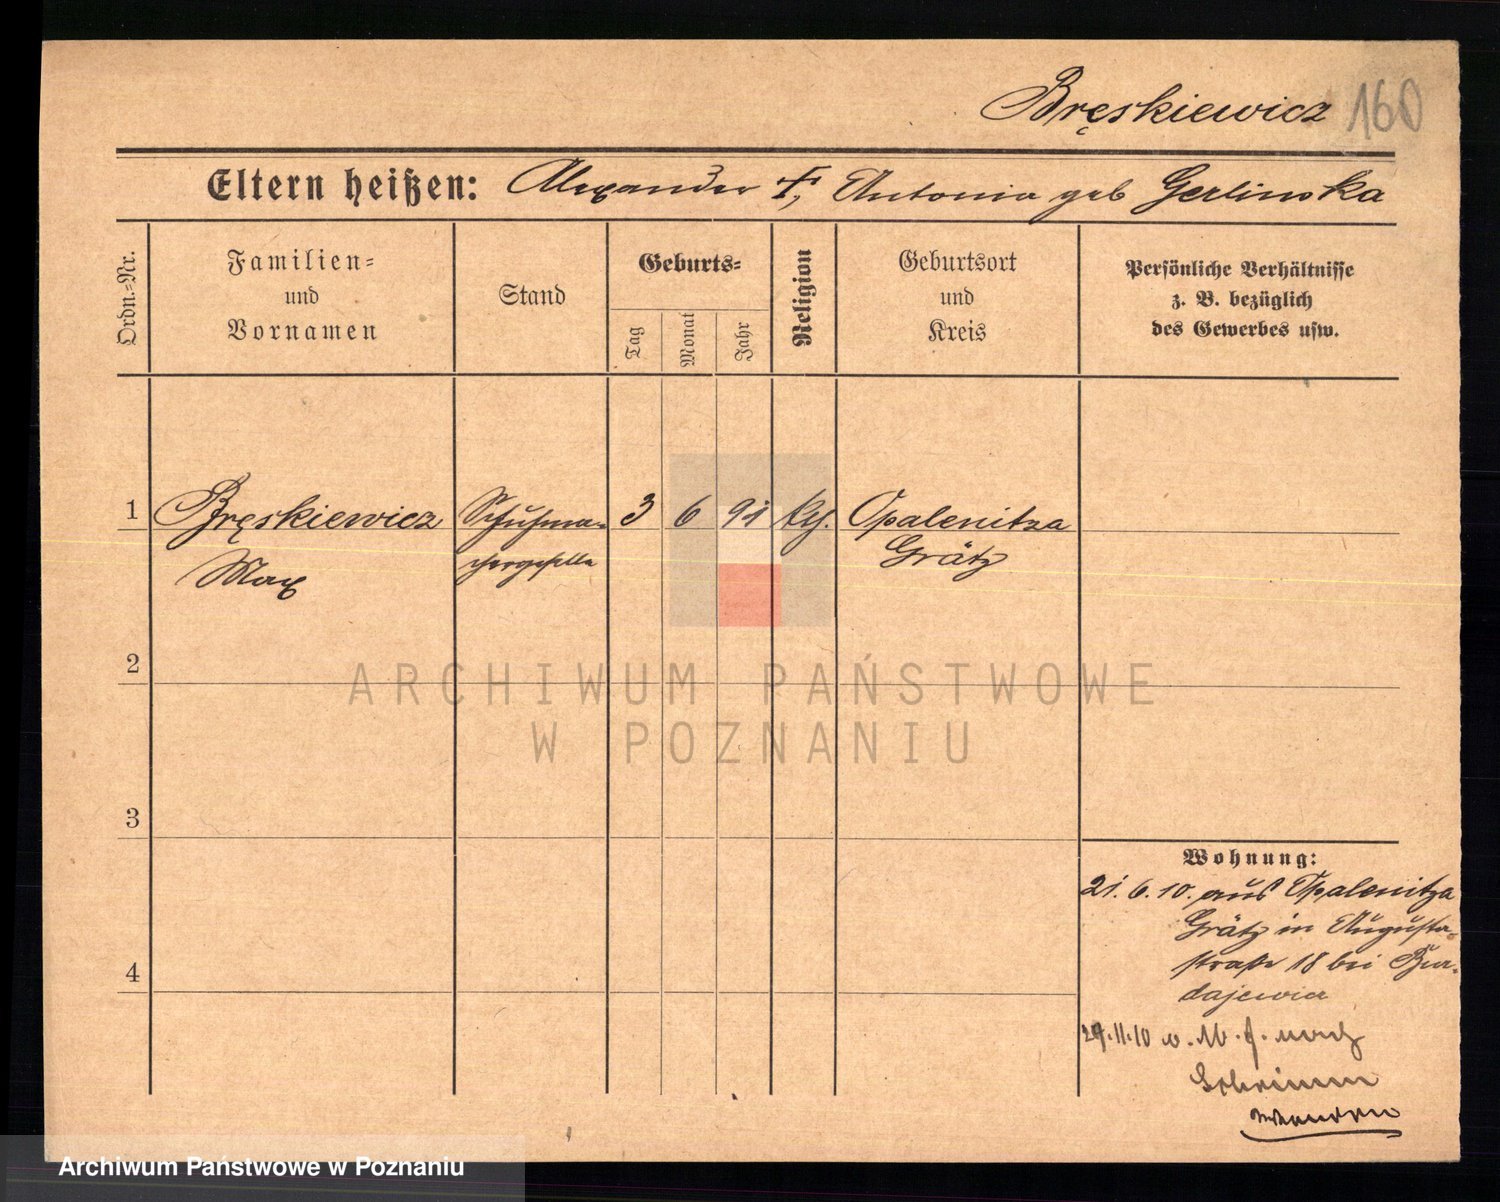 Bręskiewicz 160
Eltern heißen: Alexander †, Antonia geb Gerlinska
Ordn.-Nr.
Familien-
und
Vornamen
Stand
Geburts-
Tag
Monat
Jahr
Religion
Geburtsort
und
Kreis
Persönliche Verhältnisse
z. B. bezüglich
des Gewerbes usw.
1 Bręskiewicz Schuhma- 3 6 91 kth. Opalenitza
Max chergeselle Grätz
2
3
4
Wohnung:
21.6.10. aus Opalenitza
Grätz in Augusta-
straße 18 bei Bur-
dajewicz
29.11.10 nach
Schrimm
wenden
ARCHIWUM PAŃSTWOWE
W POZNANIU
Archiwum Państwowe w Poznaniu